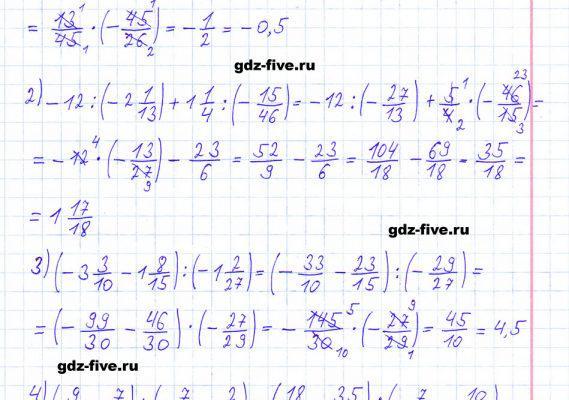 = 13/45 · (- 45/26) = - 1/2 = - 0,5
gdz-five.ru
2) - 12 : (- 2 1/13) + 1 1/4 : (- 15/46) = - 12 : (- 27/13) + 5/4 · (- 46/15) =
= - 12 · (- 13/27) - 23/6 = 52/9 - 23/6 = 104/18 - 69/18 = 35/18 =
= 1 17/18
gdz-five.ru
3) (- 3 3/10 - 1 8/15) : (- 1 2/27) = (- 33/10 - 23/15) : (- 29/27) =
= (- 99/30 - 46/30) · (- 27/29) = - 145/30 · (- 27/29) = 45/10 = 4,5
gdz-five.ru